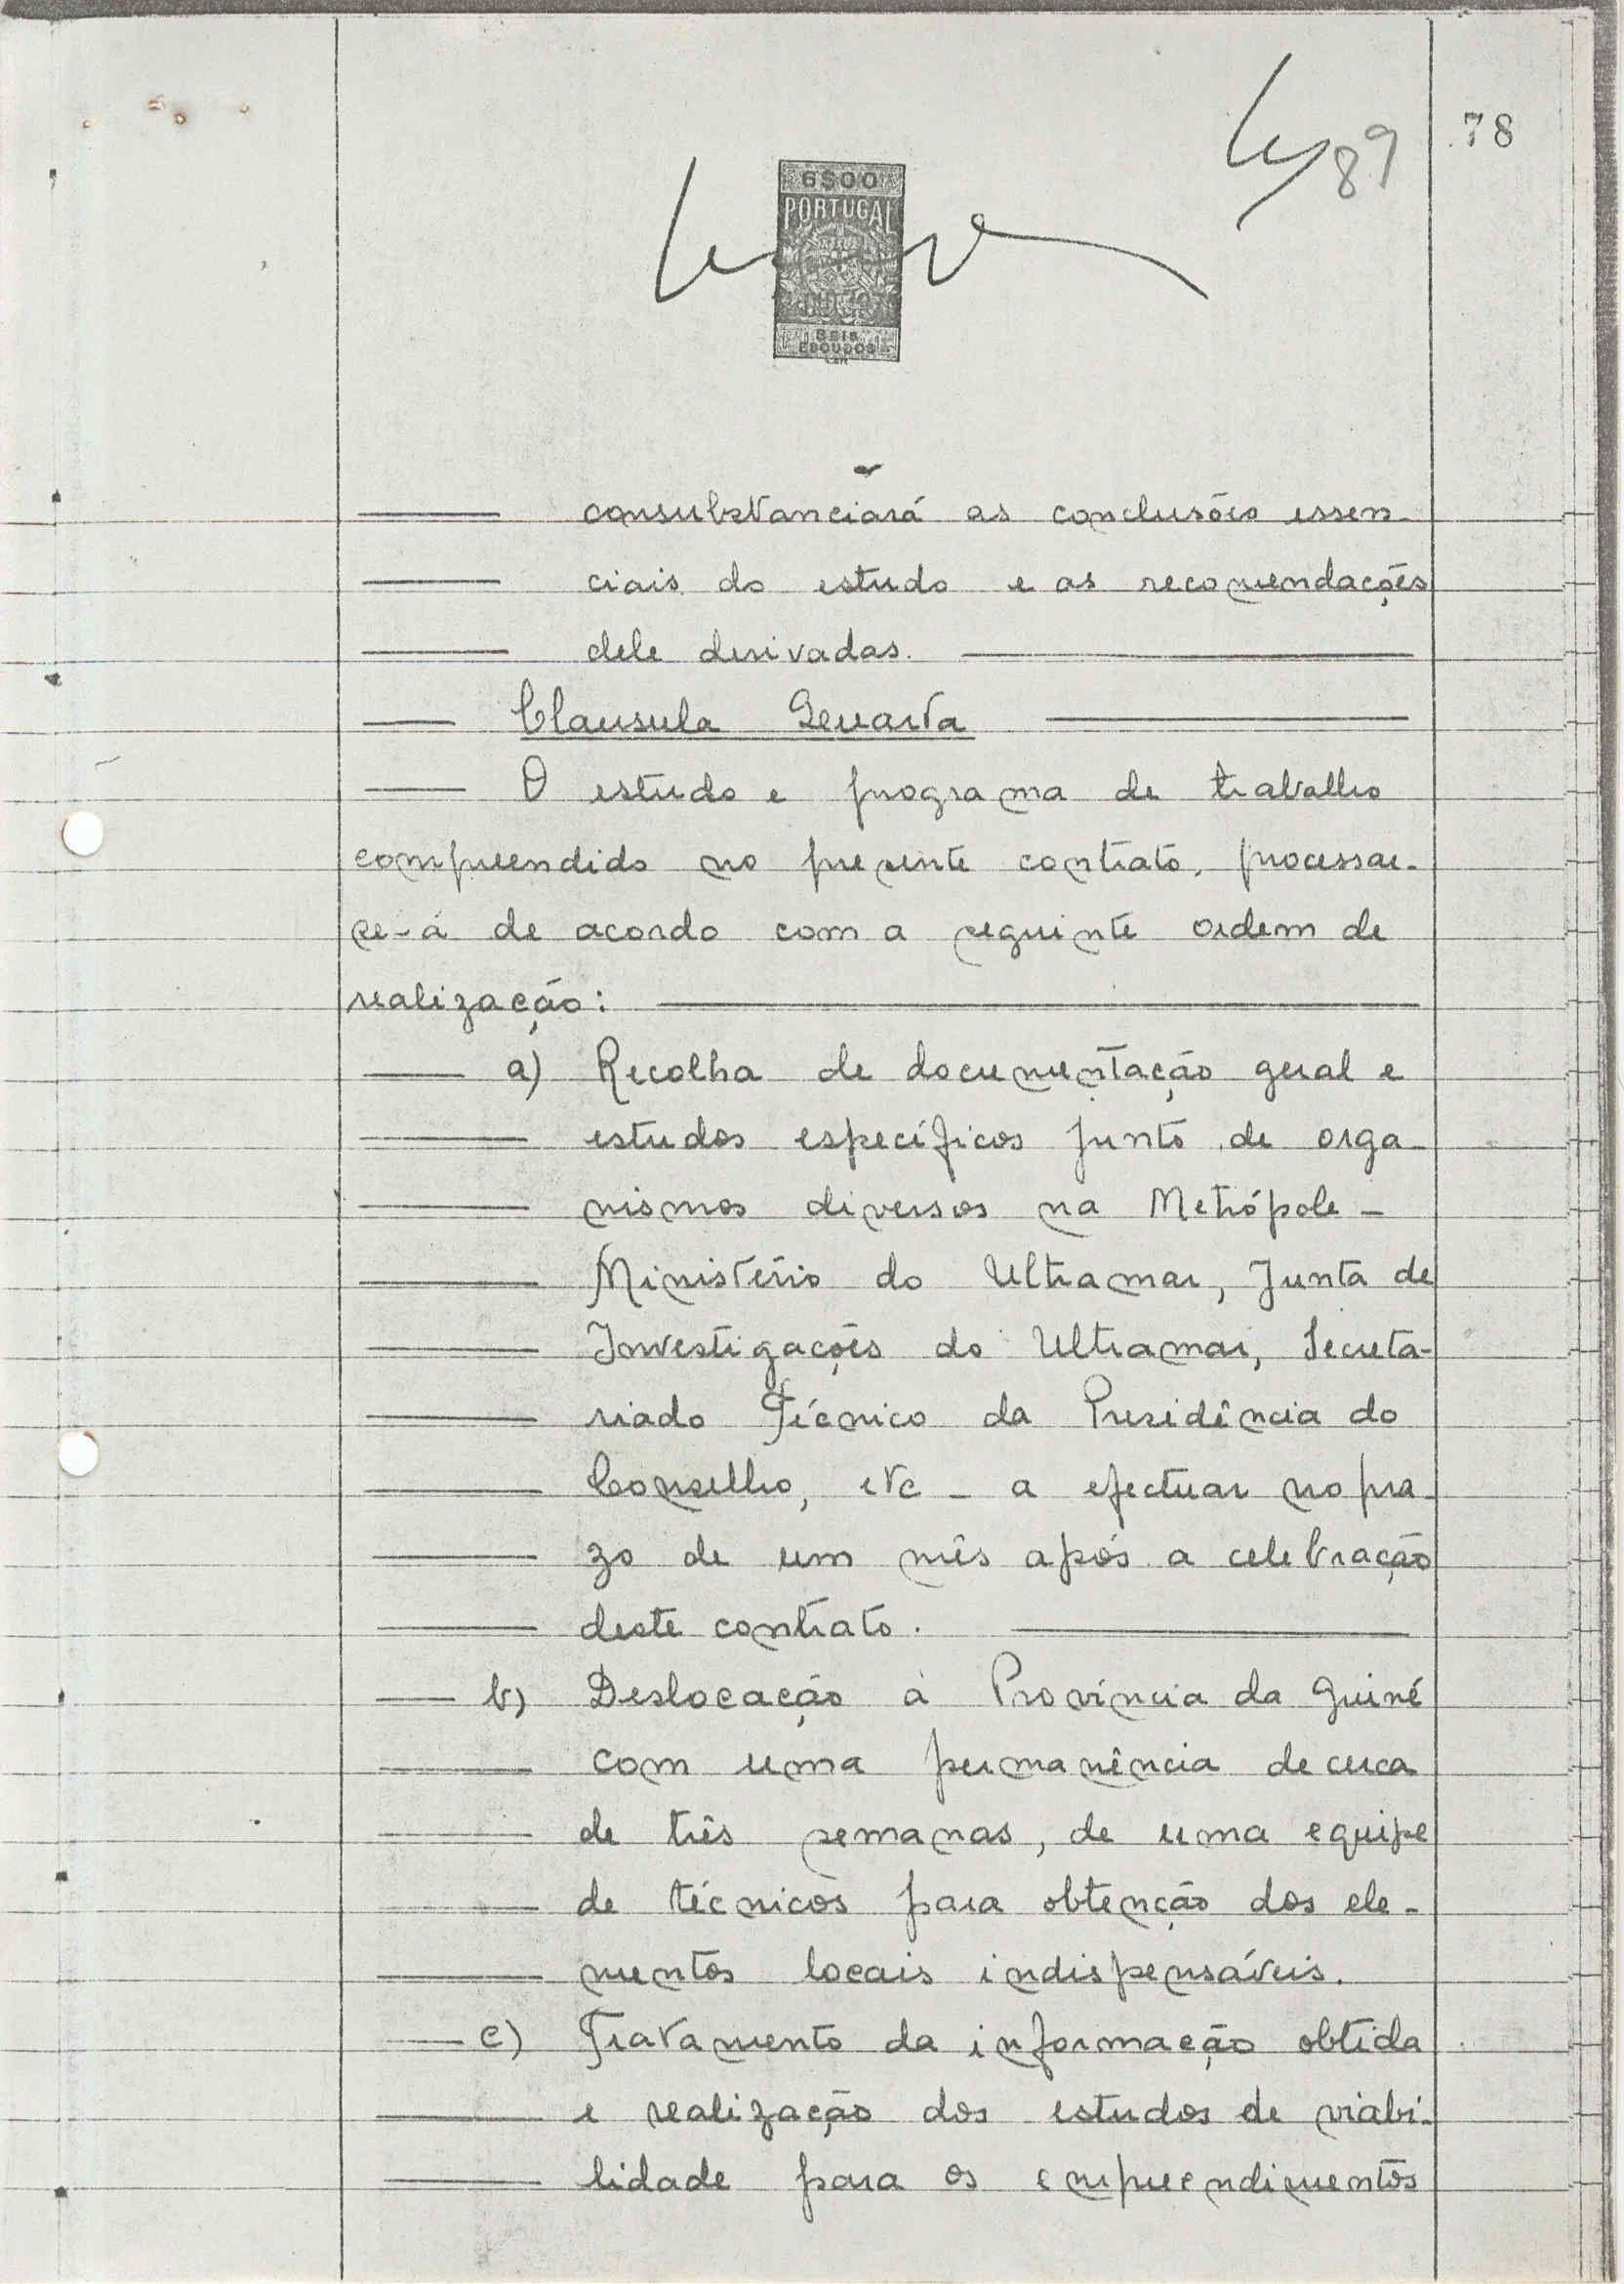 78
89
6$00
PORTUGAL
SEIS
ESCUDOS
consubstanciará as conclusões essen-
ciais do estudo e as recomendações
dele derivadas.
Clausula Quarta
O estudo e programa de trabalho
compreendido no presente contrato, processar-
se-á de acordo com a seguinte ordem de
realização:
a) Recolha de documentação geral e
estudos específicos junto de orga-
nismos diversos na Metrópole -
Ministério do Ultramar, Junta de
Investigações do Ultramar, Secreta-
riado Técnico da Presidência do
Conselho, etc - a efectuar no pra-
zo de um mês após a celebração
deste contrato.
b) Deslocação à Província da Guiné
com uma permanência de cerca
de três semanas, de uma equipe
de técnicos para obtenção dos ele-
mentos locais indispensáveis.
c) Tratamento da informação obtida
e realização dos estudos de viabi-
lidade para os empreendimentos